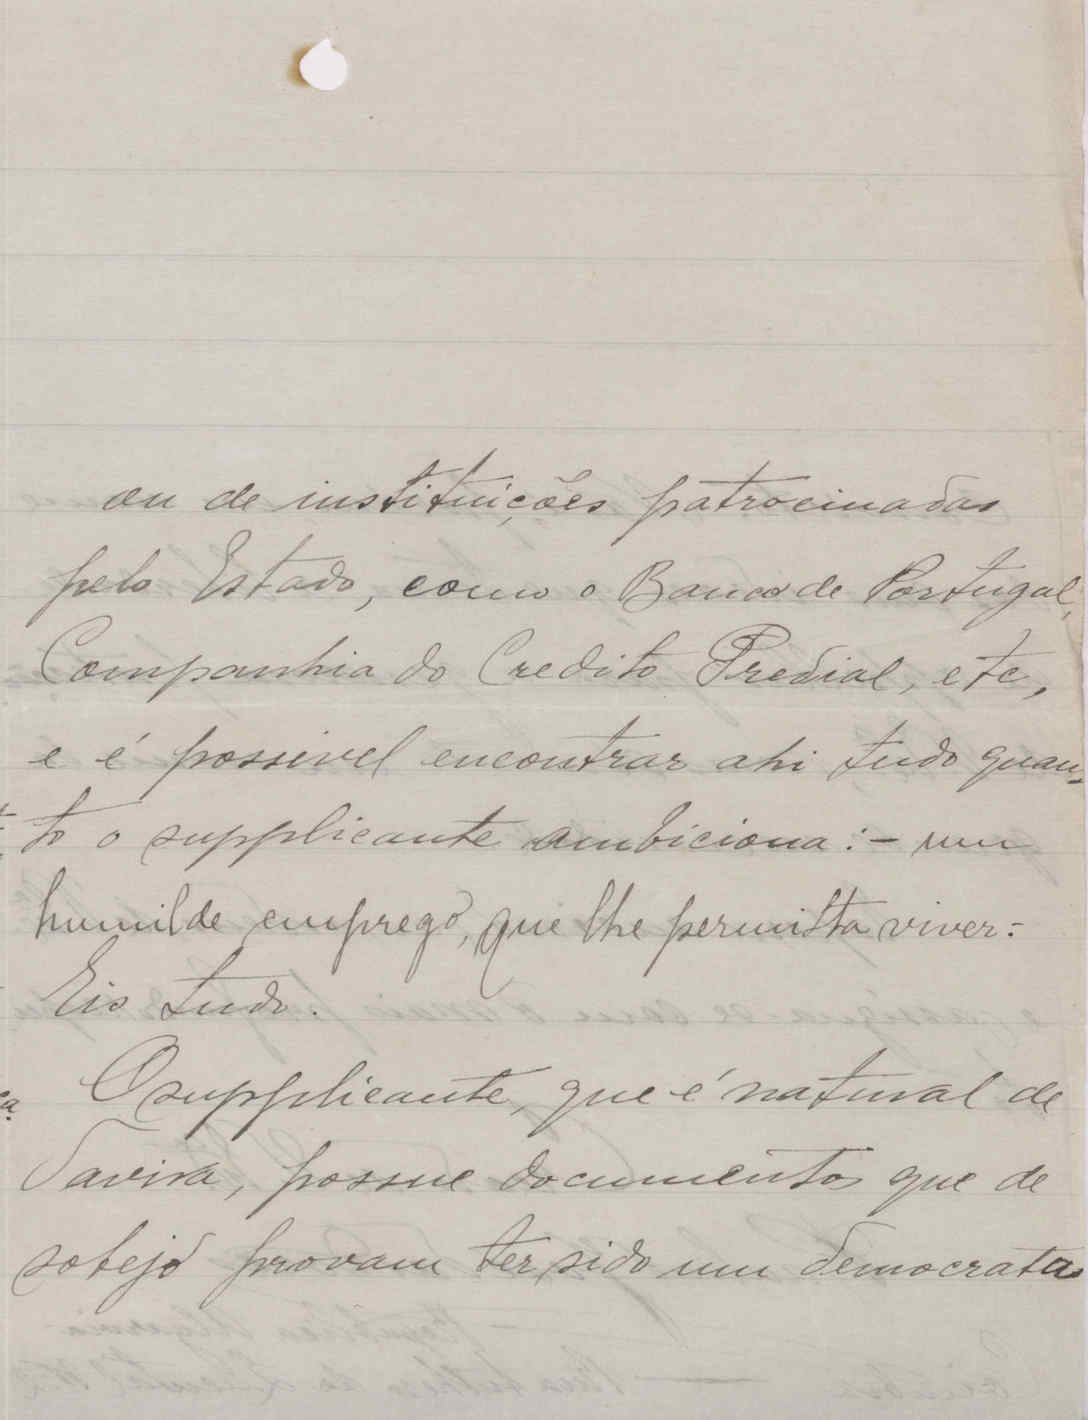 ou de instituições patrocinadas
pelo Estado, como o Banco de Portugal,
Companhia do Credito Predial, etc,
e é possivel encontrar ahi tudo quan-
to o supplicante ambiciona:- um
humilde emprego, que lhe permitta viver:
Eis tudo.
O supplicante, que é natural de
Tavira, possue documentos que de
sobejo provam ter sido um democrata